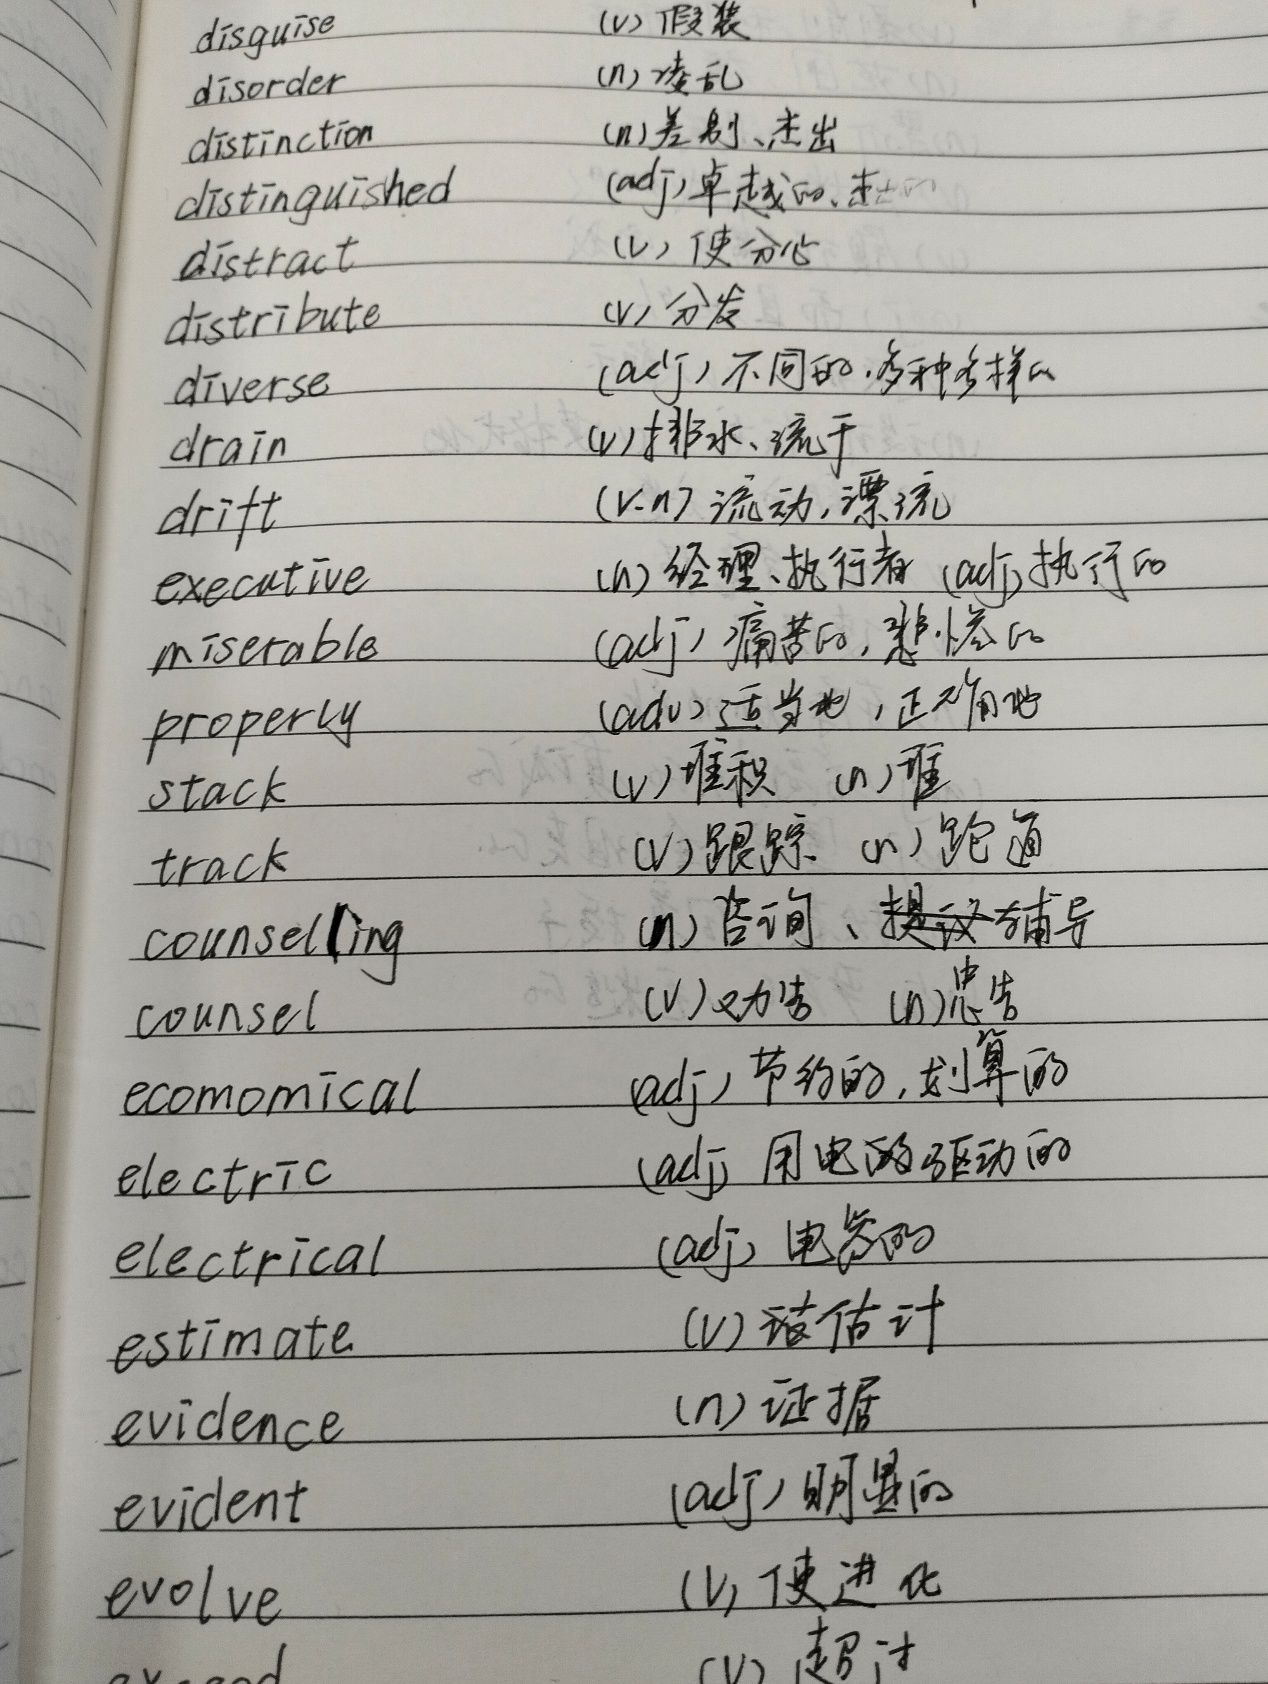 disguise (v) 假装
disorder (n) 凌乱
distinction (n) 差别、杰出
distinguished (adj) 卓越的、杰出的
distract (v) 使分心
distribute (v) 分发
diverse (adj) 不同的、多种多样的
drain (v) 排水、流干
drift (v.n) 流动,漂流
executive (n) 经理、执行者 (adj) 执行的
miserable (adj) 痛苦的,悲惨的
properly (adv) 适当地,正确地
stack (v) 堆积 (n) 堆
track (v) 跟踪 (n) 跑道
counselling (n) 咨询、提议辅导
counsel (v) 劝告 (n) 忠告
ecomomical (adj) 节约的,划算的
electric (adj) 用电的驱动的
electrical (adj) 电器的
estimate (v) 估计
evidence (n) 证据
evident (adj) 明显的
evolve (v) 使进化
(v) 超过